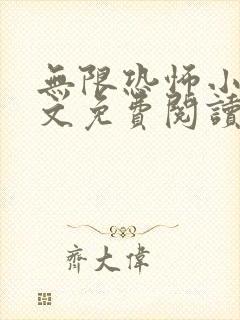 無限恐怖小
文免費閱讀
齊大偉